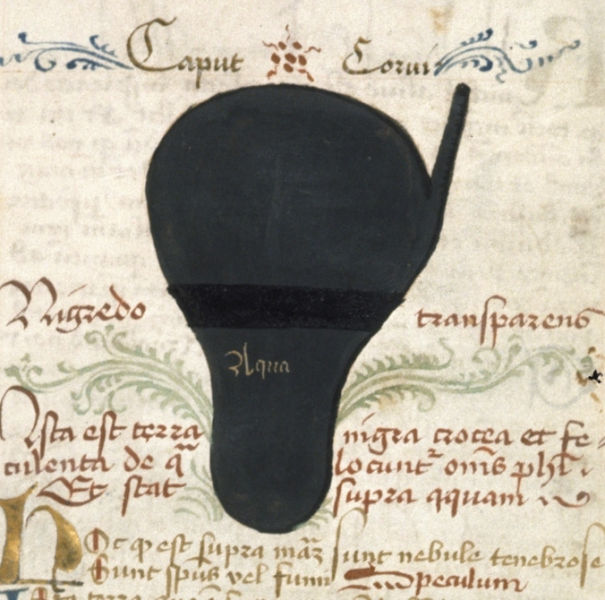 Caput Corui
Nigredo transparens
Aqua
Ista est terra nigra crocea et fe
culenta de q̄ locunt᷑ om̄s ph̄i
Et stat supra aquam
Oc ꝙ est supra sunt nebule tenebrose
Sunt sp̄us vel fumi Speculum
terra